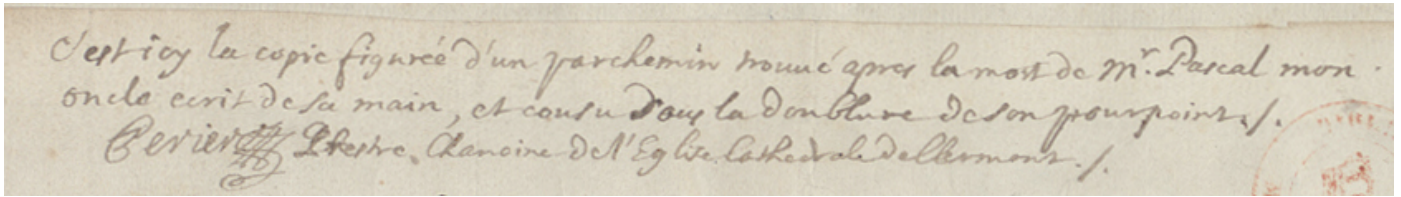 C'est icy la copie figureé d'un parchemin trouué apres la mort de Mr. Pascal mon
oncle ecrit de sa main, et cousu dous la doublure de son pourpoint./.
Perier Prestre, Chanoine de l'Eglise Cathedrale de Clermont./.